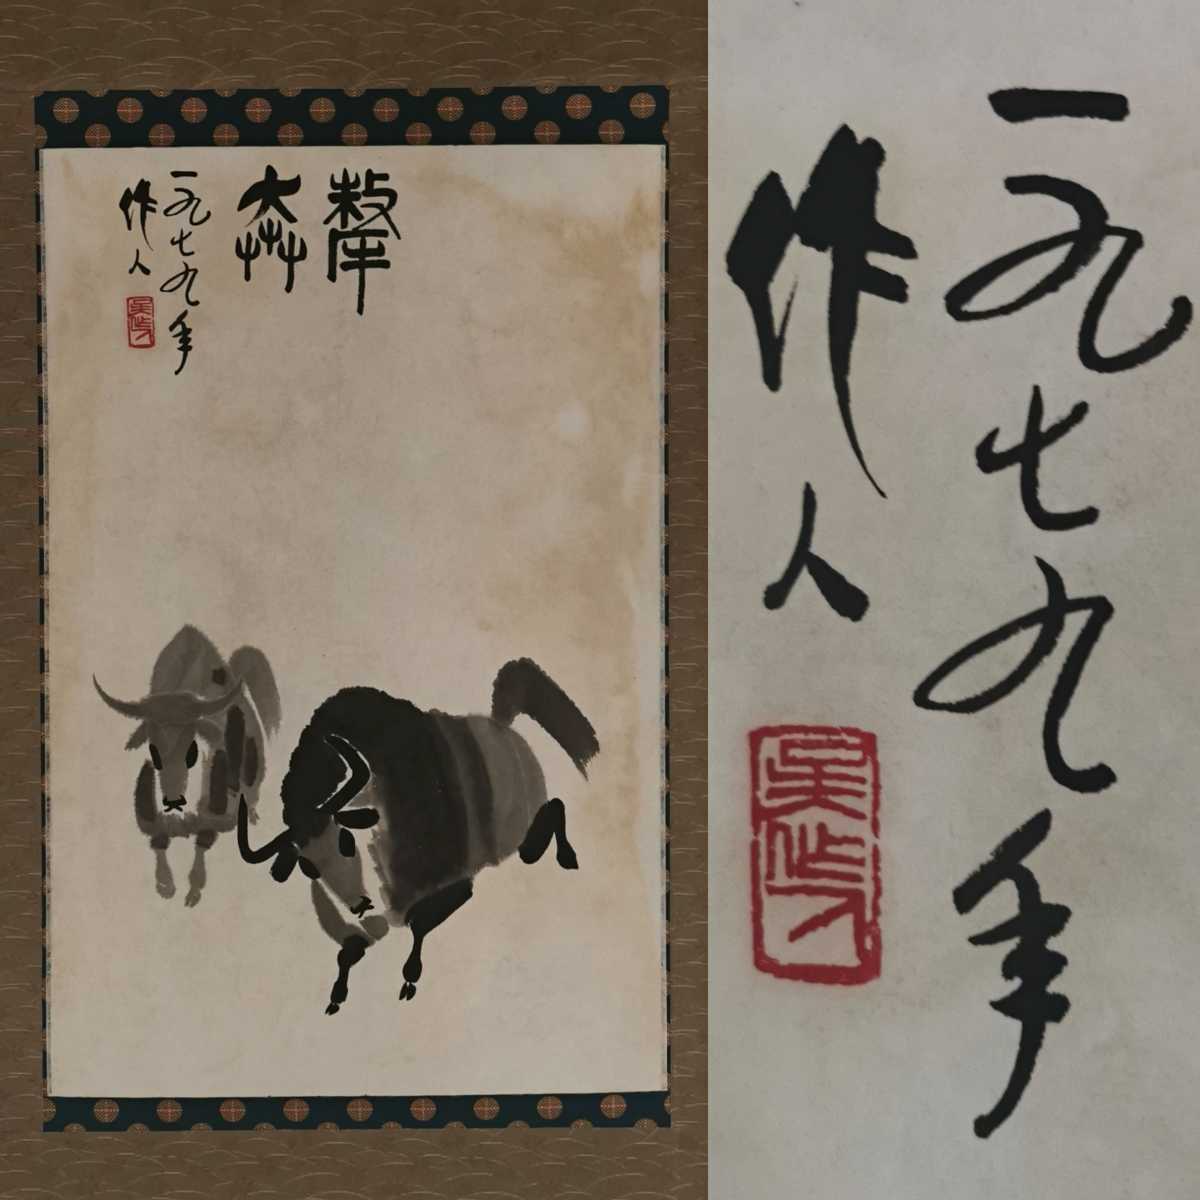 犛奔
一九七九年
作人
吴作人
一九七九年
作人
吴作人